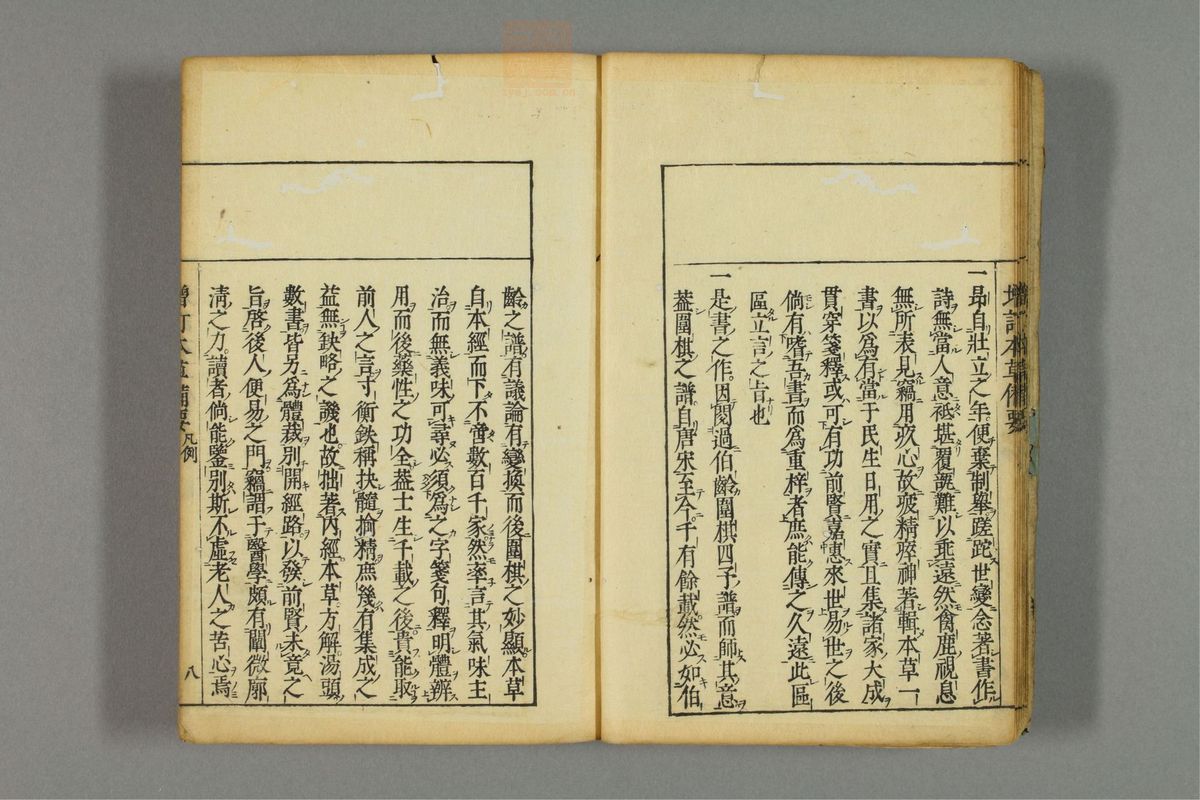 增訂本草備要
一昻自壯立之年便棄制舉蹉跎世變念著書作
詩無當人意祗堪覆瓿難以垂遠然禽鹿視息
無所表見竊用疚心故疲精瘁神著輯本草一
書以爲有當于民生日用之實且集諸家大成
貫穿箋釋或可有功前賢嘉惠來世易世之後
倘有嗜吾書而爲重梓者庶能傳之久遠此區
區立言之㫖也
一是書之作因閱過伯齡圍棋四子譜而師其意
葢圍棋之譜自唐宋至今千有餘載然必如伯
齡之譜有議論有變換而後圍棋之妙顯本草
自本經而下不啻數百千家然率言其氣味主
治而無義味可尋必須爲之字箋句釋明體辨
用而後藥性之功全葢士生千載之後貴能取
前人之言寸衡銖稱抉髓摘精庶幾有集成之
益無缺略之譏也故拙著內經本草方解湯頭
數書皆另爲體裁別開經路以發前賢未竟之
旨啓後人便易之門竊謂于醫學頗有闡微廓
淸之力讀者倘能鑒別斯不虛老人之苦心焉
增訂本草備要 凡例 八